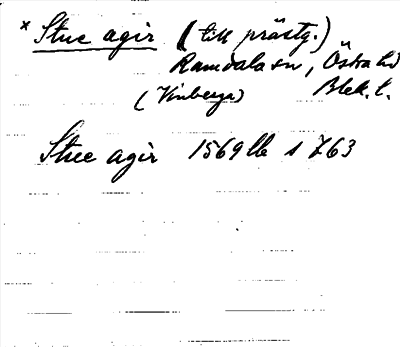 * Stue agir (till prästg.)
Ramdala sn, Östra hd
(Vinberga) Blek. l.
Stue agir 1569 lb s 263